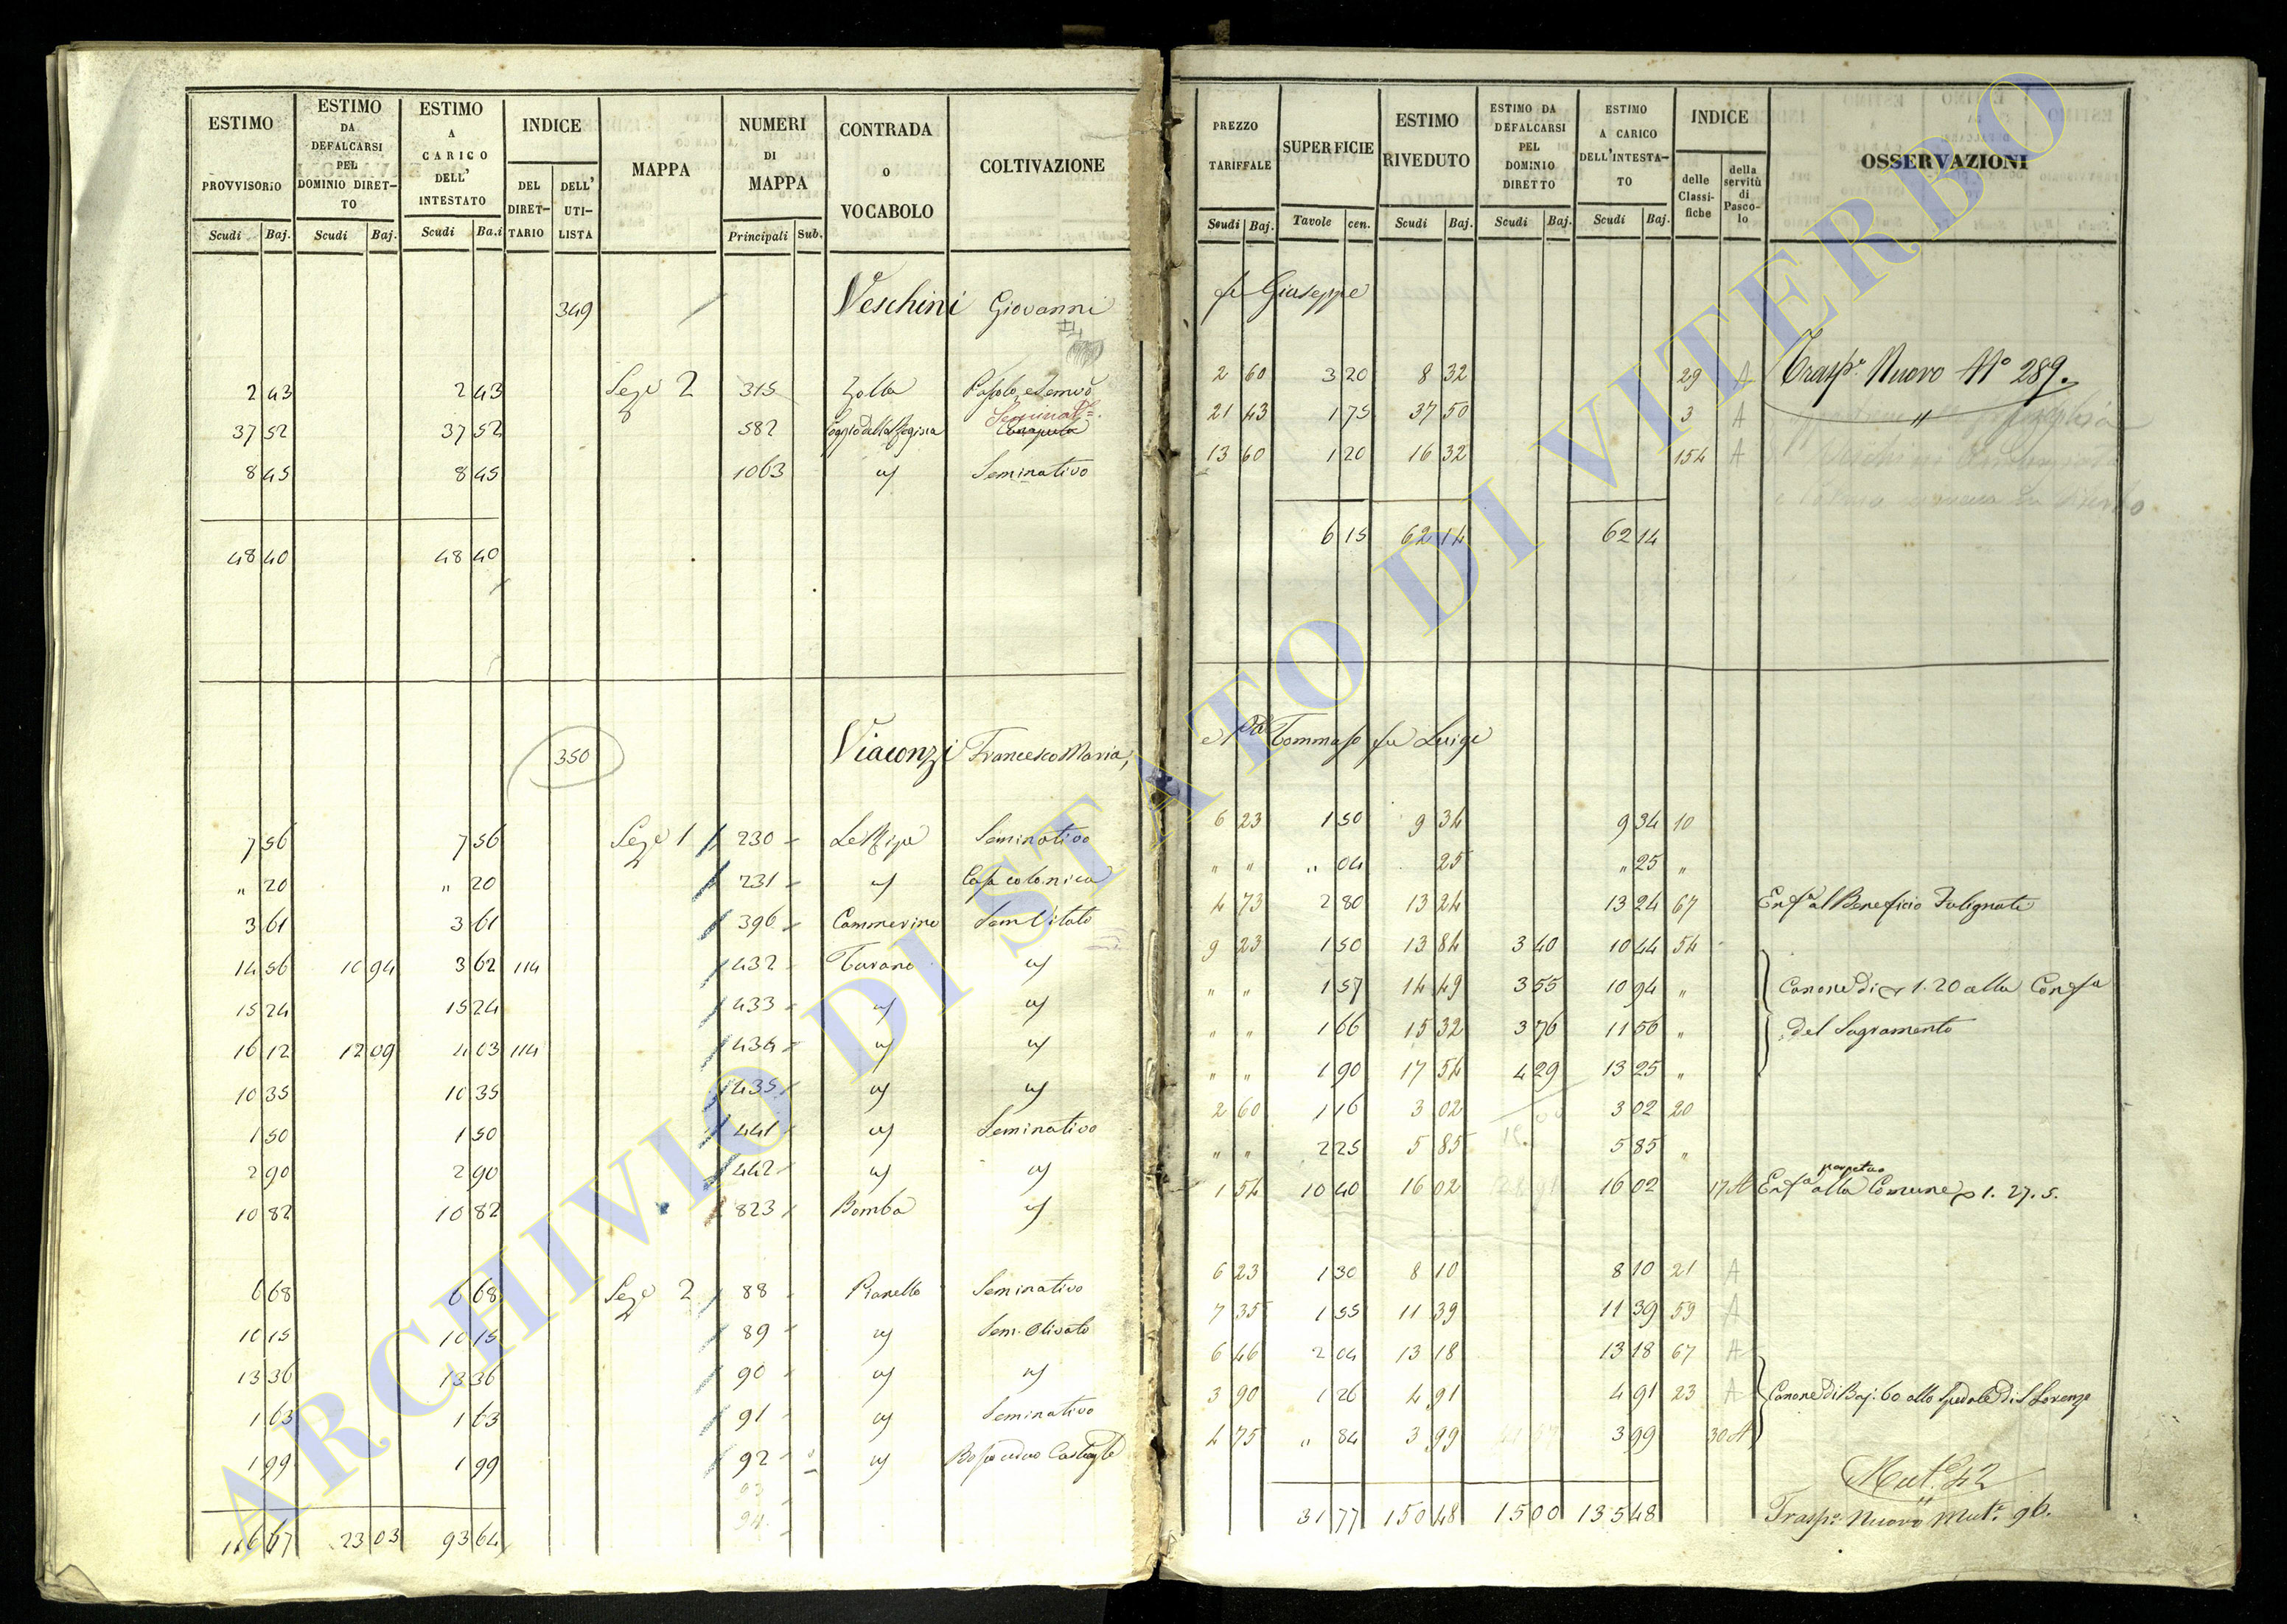 ESTIMO PROVVISORIO Scudi Baj.
ESTIMO DA DEFALCARSI PEL DOMINIO DIRET-TO Scudi Baj.
ESTIMO A CARICO DELL' INTESTATO Scudi Ba.i
INDICE DEL DIRET-TARIO DELL' UTI-LISTA
MAPPA
NUMERI DI MAPPA Principali Sub.
CONTRADA o VOCABOLO
COLTIVAZIONE
PREZZO TARIFFALE Scudi Baj.
SUPERFICIE Tavole cen.
ESTIMO RIVEDUTO Scudi Baj.
ESTIMO DA DEFALCARSI PEL DOMINIO DIRETTO Scudi Baj.
ESTIMO A CARICO DELL'INTESTA-TO Scudi Baj.
INDICE delle Classi-fiche della servitù di Pasco-lo
OSSERVAZIONI
349 Veschini Giovanni fu Giuseppe
2 43 2 43 Sez.e 2 315 Zolla 2 60 3 20 8 32 29 A Trasp.o Nuovo N.o 289.
37 52 37 52 582 Seminat. 21 43 1 75 37 50 3 A "
8 45 8 45 1063 " Seminativo 13 60 1 20 16 32 154 A
48 40 48 40 6 15 62 14 62 14
350 Viaconzi Francesco Maria, e Tommaso fu Luigi
7 56 7 56 Sez.e 1 230 Le Ripe Seminativo 6 23 1 50 9 34 9 34 10
" 20 " 20 231 " Casa colonica " " " 04 25 " 25 "
3 61 3 61 396 Cammerino Sem Vitato 4 73 2 80 13 24 13 24 67 Enf.a al Beneficio Fulignati
14 56 10 94 3 62 114 432 Turano " 9 23 1 50 13 84 3 40 10 44 54
15 24 15 24 433 " " " " 1 57 14 49 3 55 10 94 " Canone di 1.20 alla Conf.a
16 12 12 09 4 03 114 434 " " " " 1 66 15 32 3 76 11 56 " del Sagramento
10 35 10 35 435 " " " " 1 90 17 54 4 29 13 25 "
1 50 1 50 441 " Seminativo 2 60 1 16 3 02 3 02 20
2 90 2 90 442 " " " " 2 25 5 85 5 85 "
10 82 10 82 823 Bomba " 1 54 10 40 16 02 16 02 17 A Enf.a perpetua alla Comune 1. 27. 5.
6 68 6 68 Sez.e 2 88 Pianello Seminativo 6 23 1 30 8 10 8 10 21 A
10 15 10 15 89 " Sem. Olivato 7 35 1 55 11 39 11 39 59 A
13 36 13 36 90 " " 6 46 2 04 13 18 13 18 67 A
1 63 1 63 91 " Seminativo 3 90 1 26 4 91 4 91 23 A Canone di Baj: 60 allo Spedale di S Lorenzo
1 99 1 99 92 " 4 75 " 84 3 99 3 99 30 A
93
94
Mut.e 42
116 67 23 03 93 64 31 77 150 48 15 00 135 48 Trasp.o Nuovo Mut.e 96.
ARCHIVIO DI STATO DI VITERBO